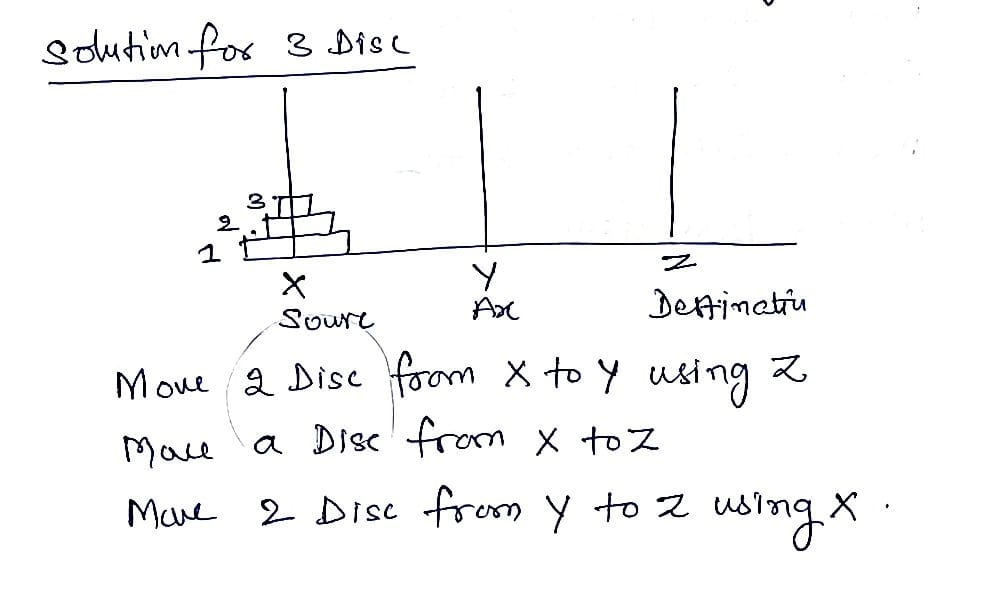 Solution for 3 Disc
3
2
1
X Y Z
Sourc Ax Destination
Move 2 Disc from X to Y using Z
Move a Disc from X to Z
Move 2 Disc from Y to Z using X.